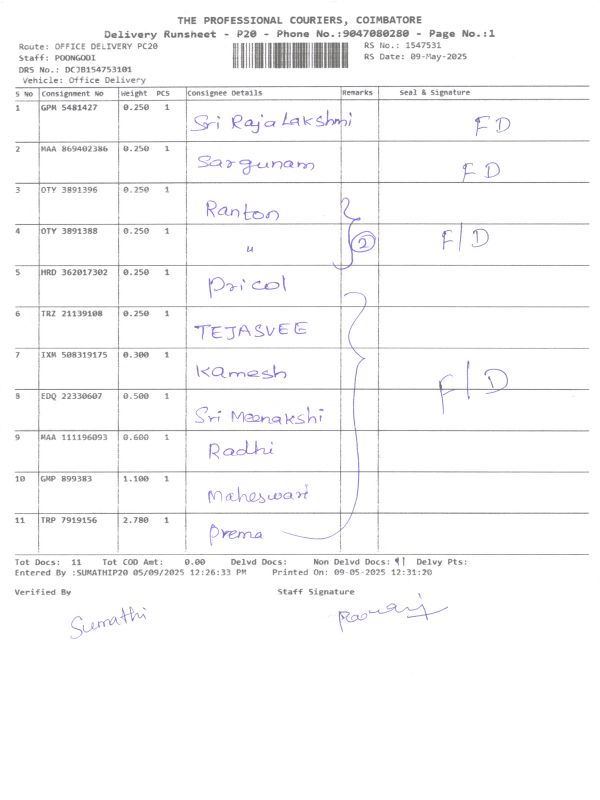 THE PROFESSIONAL COURIERS, COIMBATORE
Delivery Runsheet - P20 - Phone No.:9047080280 - Page No.:1
Route: OFFICE DELIVERY PC20 RS No.: 1547531
Staff: POONGODI RS Date: 09-May-2025
DRS No.: DCJB154753101
Vehicle: Office Delivery
S No Consignment No Weight PCS Consignee Details Remarks Seal & Signature
1 GPM 5481427 0.250 1 Sri RajaLakshmi FD
2 MAA 869402386 0.250 1 Sargunam FD
3 OTY 3891396 0.250 1 Ranton
4 OTY 3891388 0.250 1 " 2 F/D
5 HRD 362017302 0.250 1 Pricol
6 TRZ 21139108 0.250 1 TEJASVEE
7 IXM 508319175 0.300 1 Kamesh F/D
8 EDQ 22330607 0.500 1 Sri Meenakshi
9 MAA 111196093 0.600 1 Radhi
10 GMP 899383 1.100 1 Maheswari
11 TRP 7919156 2.780 1 Prema
Tot Docs: 11 Tot COD Amt: 0.00 Delvd Docs: Non Delvd Docs: Delvy Pts:
Entered By :SUMATHIP20 05/09/2025 12:26:33 PM Printed On: 09-05-2025 12:31:20
Verified By Staff Signature
Sumathi